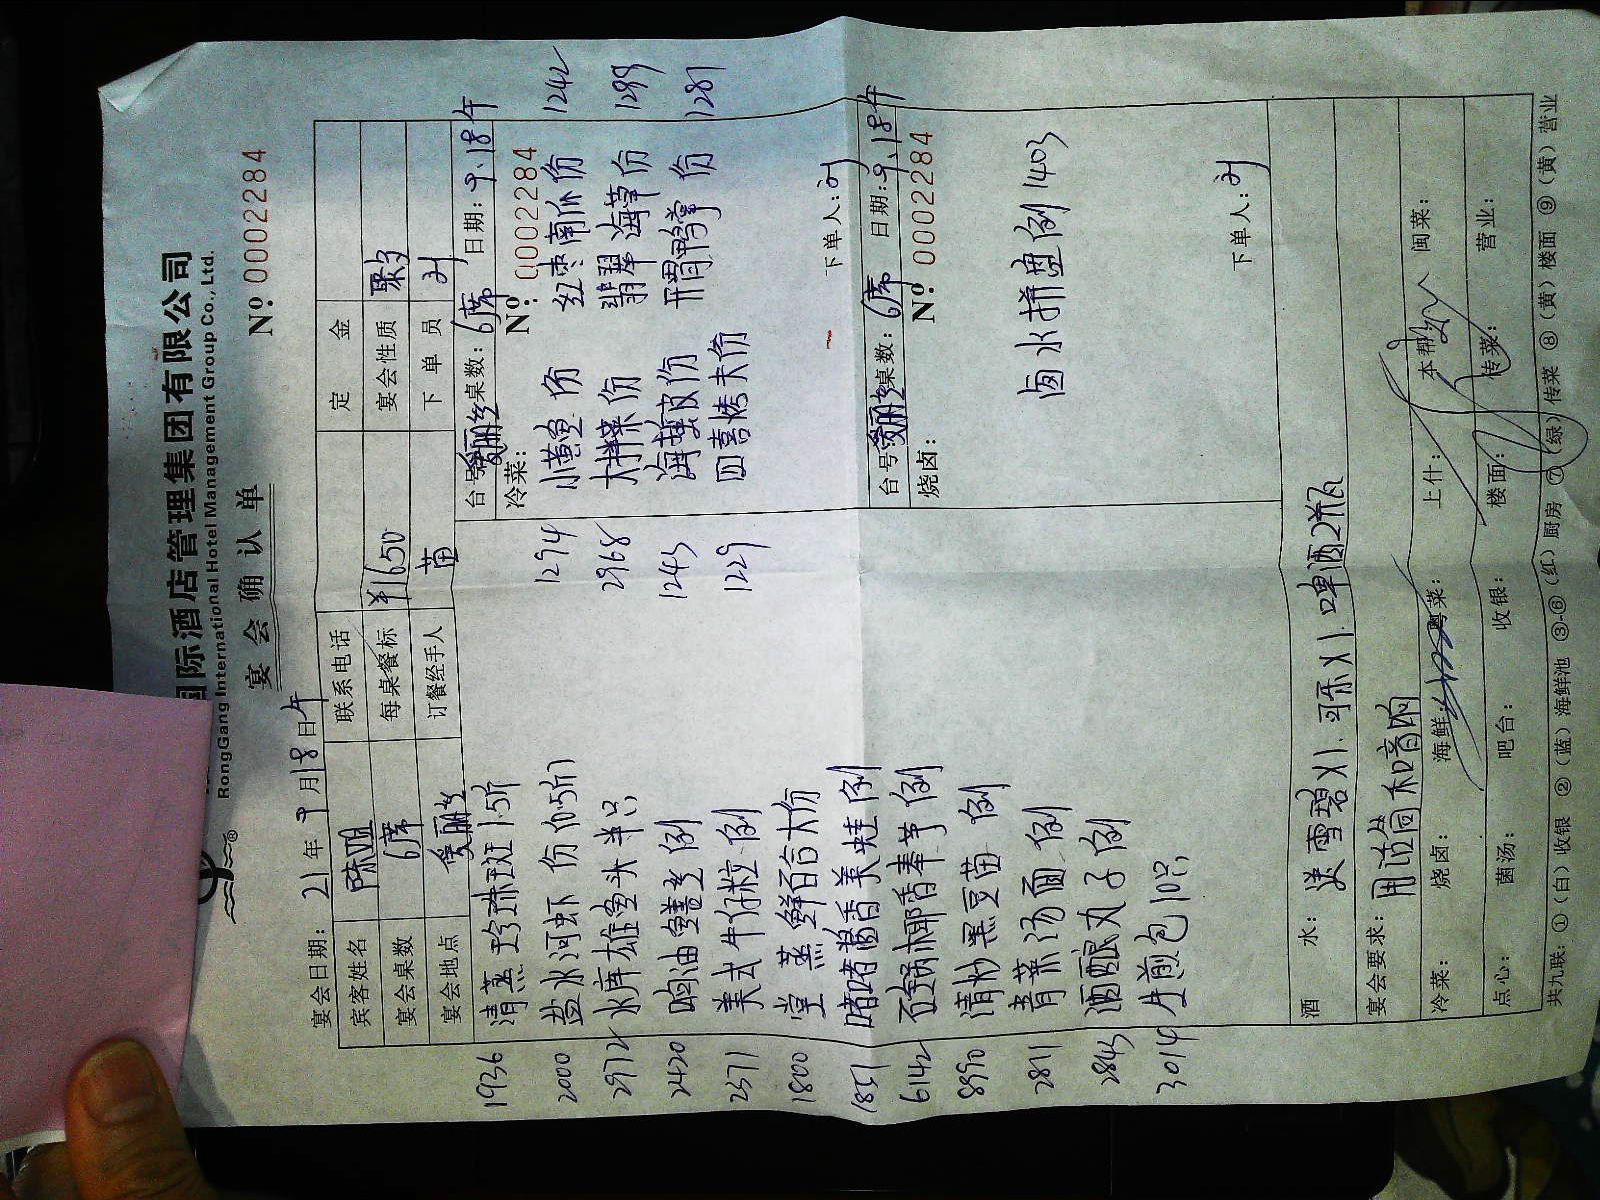 国际酒店管理集团有限公司
RongGang International Hotel Management Group Co., Ltd.
宴会确认单
Nº 0002284
宴会日期： 21 年 9 月 18 日 午
宾客姓名 陈姐 联系电话 定金
宴会桌数 6席 每桌餐标 ¥1650 宴会性质 聚
宴会地点 美丽 订餐经手人 苗 下单员
1936 清蒸珍珠斑 1.5斤
2000 盐水河虾 份
2972 水库雄鱼头半只
2420 响油鳝丝 例
2371 美式牛仔粒 例
1800 堂蒸鲜百合大份
1851 啫啫酱香美蛙 例
6142 石锅椰香奉芋 例
8990 清炒黑豆苗 例
2811 青菜汤面 例
2843 酒酿丸子 例
3014 生煎包 10只
台号： 桌数：6席 日期：9.18午
冷菜： Nº: 0002284
1294 小黄鱼 份 红枣南瓜 份 1242
2968 大拌菜 份 翡翠海草 份 1299
1243 海蜇皮 份 开胃鸭掌 份 1281
1229 四喜烤夫 份
下单人：
台号： 桌数：6席 日期：9.18午
烧卤： Nº: 0002284
卤水拼盘 例 1403
下单人：
酒 水： 送雪碧X1. 可乐X1. 啤酒2瓶
宴会要求： 用话筒和音响
冷菜： 烧卤： 海鲜： 粤菜： 上什： 本帮： 闽菜：
点心： 菌汤： 吧台： 收银： 楼面： 传菜： 营业：
共九联：①（白）收银 ②（蓝）海鲜池 ③-⑥（红）厨房 ⑦（绿）传菜 ⑧（黄）楼面 ⑨（黄）营业